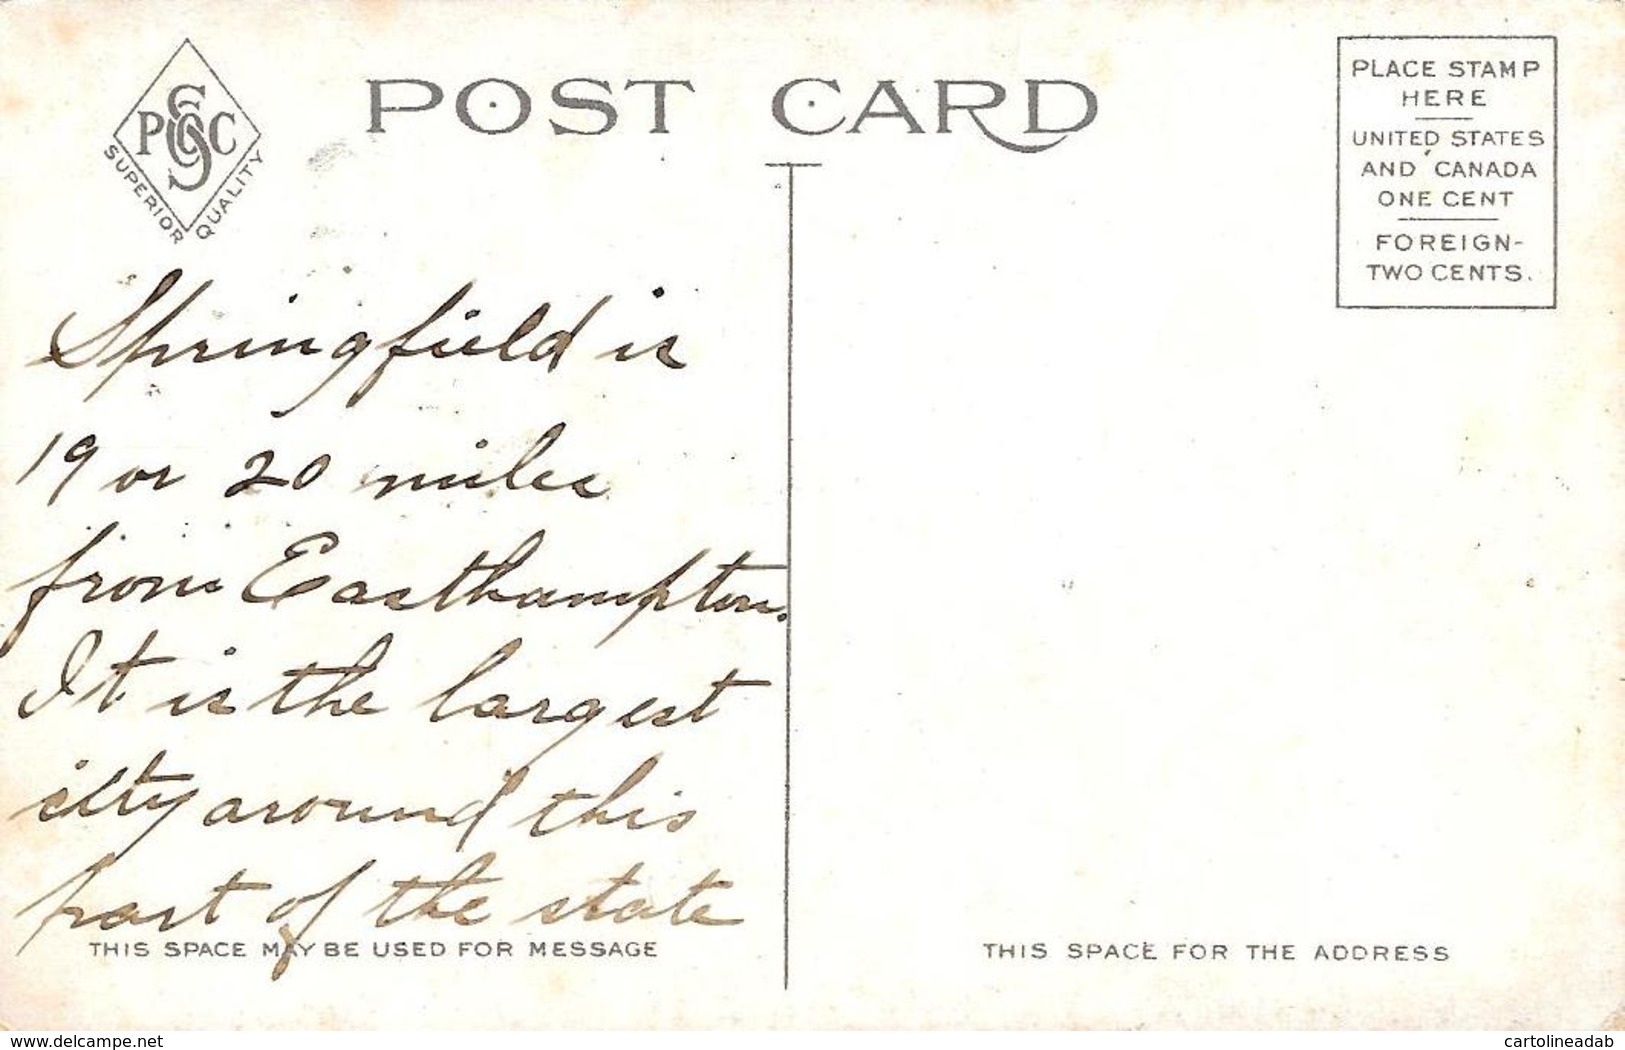 POST CARD
P S C
SUPERIOR QUALITY
PLACE STAMP
HERE
UNITED STATES
AND CANADA
ONE CENT
FOREIGN-
TWO CENTS.
Springfield is
19 or 20 miles
from Easthampton.
It is the largest
city around this
part of the state
THIS SPACE MAY BE USED FOR MESSAGE
THIS SPACE FOR THE ADDRESS
www.delcampe.net
cartolineadab